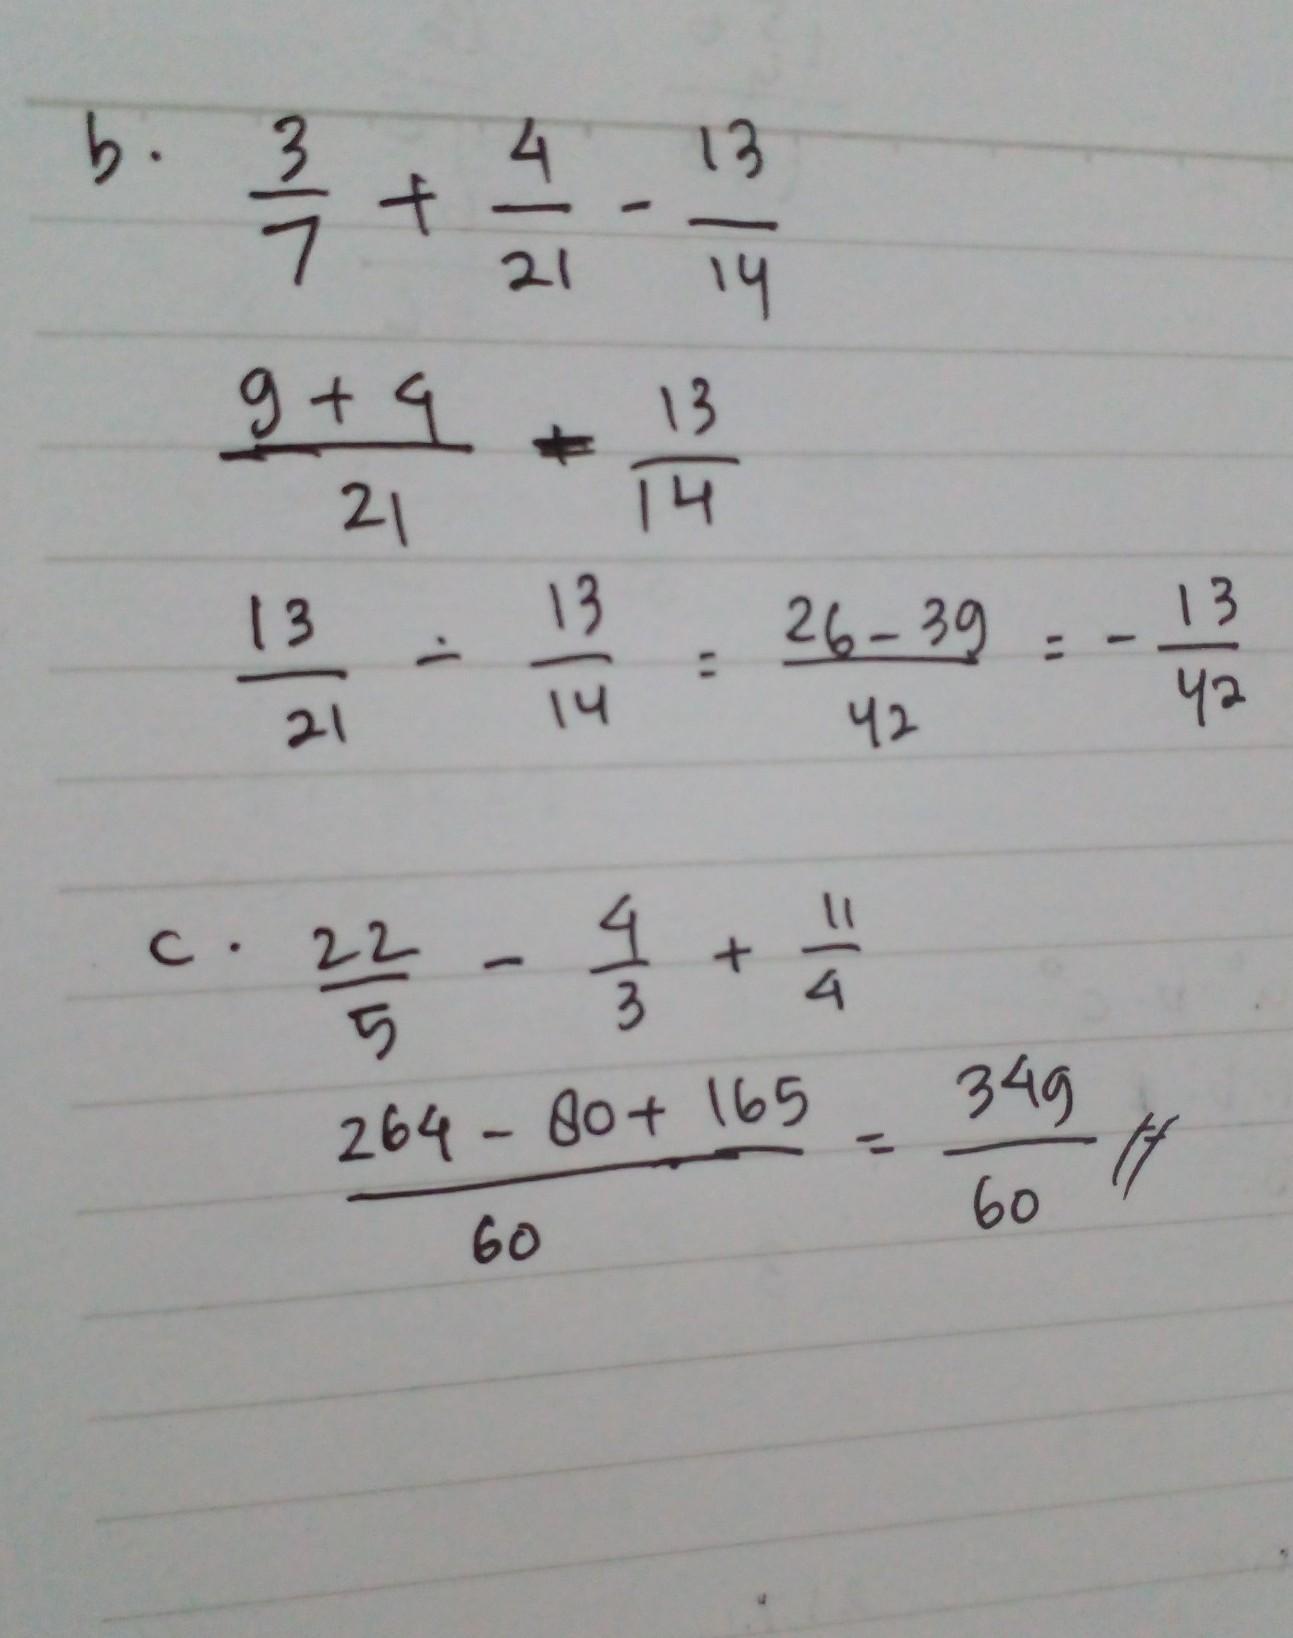 b. 3/7 + 4/21 - 13/14
9+4/21 - 13/14
13/21 ÷ 13/14 = 26-39/42 = - 13/42
c. 22/5 - 4/3 + 11/4
264 - 80 + 165/60 = 349/60 //